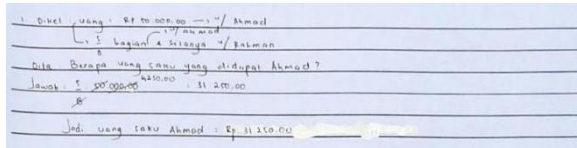 1. Diket uang : Rp 50.000.00 → u/ Ahmad
5/8 bagian u/ ahmad & sisanya u/ Rahman
Dita Berapa uang saku yang didapat Ahmad?
Jawab : 5/8 50.000,00 6250.00 : 31 250.00
Jadi uang saku Ahmad : Rp. 31.250.00